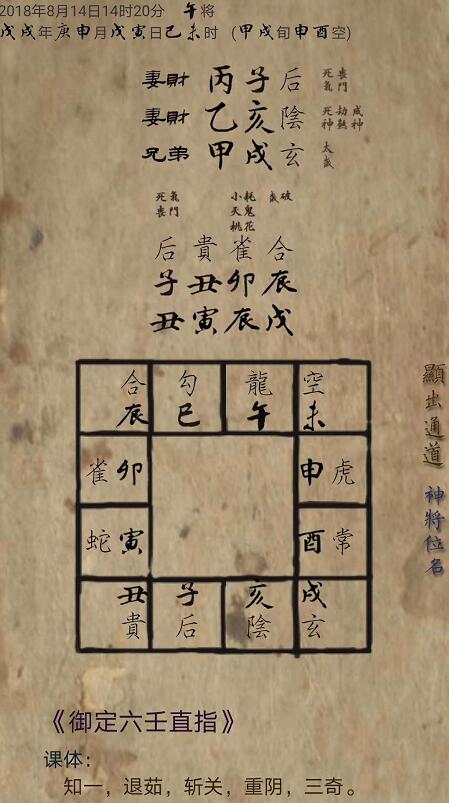 2018年8月14日14时20分 午将
戊戌年庚申月戊寅日己未时 (甲戌旬申酉空)
妻財 丙子后 死氣 喪門
妻財 乙亥陰 死神 劫煞 成神
兄弟 甲戌玄 太歲
死氣 喪門 小耗 天鬼 桃花 歲破
后貴雀合
子丑卯辰
丑寅辰戊
合 勾 龍 空
辰 巳 午 未
雀卯 申虎
蛇寅 酉常
丑 子 亥 戌
貴 后 陰 玄
顯出通道 神將位名
《御定六壬直指》
课体:
知一，退茹，斩关，重阴，三奇。